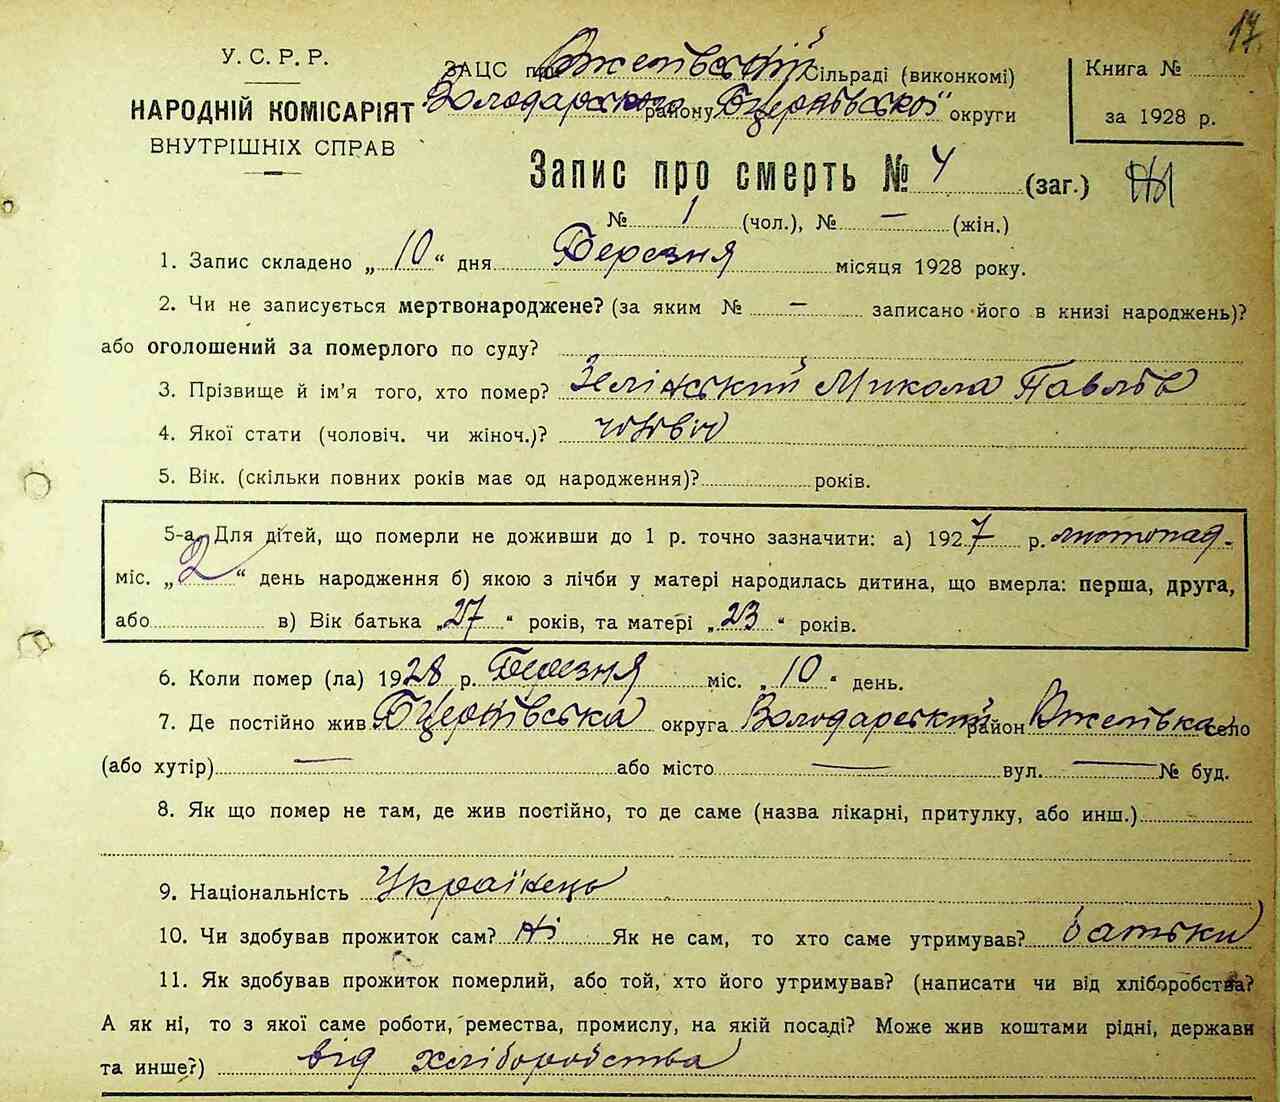 17
У. С. Р. Р.
НАРОДНІЙ КОМІСАРІЯТ
ВНУТРІШНІХ СПРАВ
ЗАЦС при Сільраді (виконкомі)
Володарського району БЦерківської округи
Книга №
за 1928 р.
Запис про смерть № 4 (заг.)
№ 1 (чол.), № — (жін.)
1. Запис складено „ 10 “ дня Березня місяця 1928 року.
2. Чи не записується мертвонароджене? (за яким № — записано його в книзі народжень)?
або оголошений за померлого по суду?
3. Прізвище й ім’я того, хто помер? Зелінський Микола Павлов
4. Якої стати (чоловіч. чи жіноч.)? чоловіч
5. Вік. (скільки повних років має од народження)? років.
5-а. Для дітей, що померли не доживши до 1 р. точно зазначити: а) 1927 р. листопад.
міс. „ 2 “ день народження б) якою з лічби у матері народилась дитина, що вмерла: перша, друга,
або в) Вік батька „27“ років, та матері „23“ років.
6. Коли помер (ла) 1928 р. Березня міс. „10“ день.
7. Де постійно жив БЦерківська округа Володарський район село
(або хутір) — або місто — вул. — № буд.
8. Як що помер не там, де жив постійно, то де саме (назва лікарні, притулку, або инш.)
9. Національність Українець
10. Чи здобував прожиток сам? Ні Як не сам, то хто саме утримував? батьки
11. Як здобував прожиток померлий, або той, хто його утримував? (написати чи від хліборобства?
А як ні, то з якої саме роботи, ремества, промислу, на якій посаді? Може жив коштами рідні, держави
та инше?) від хліборобства